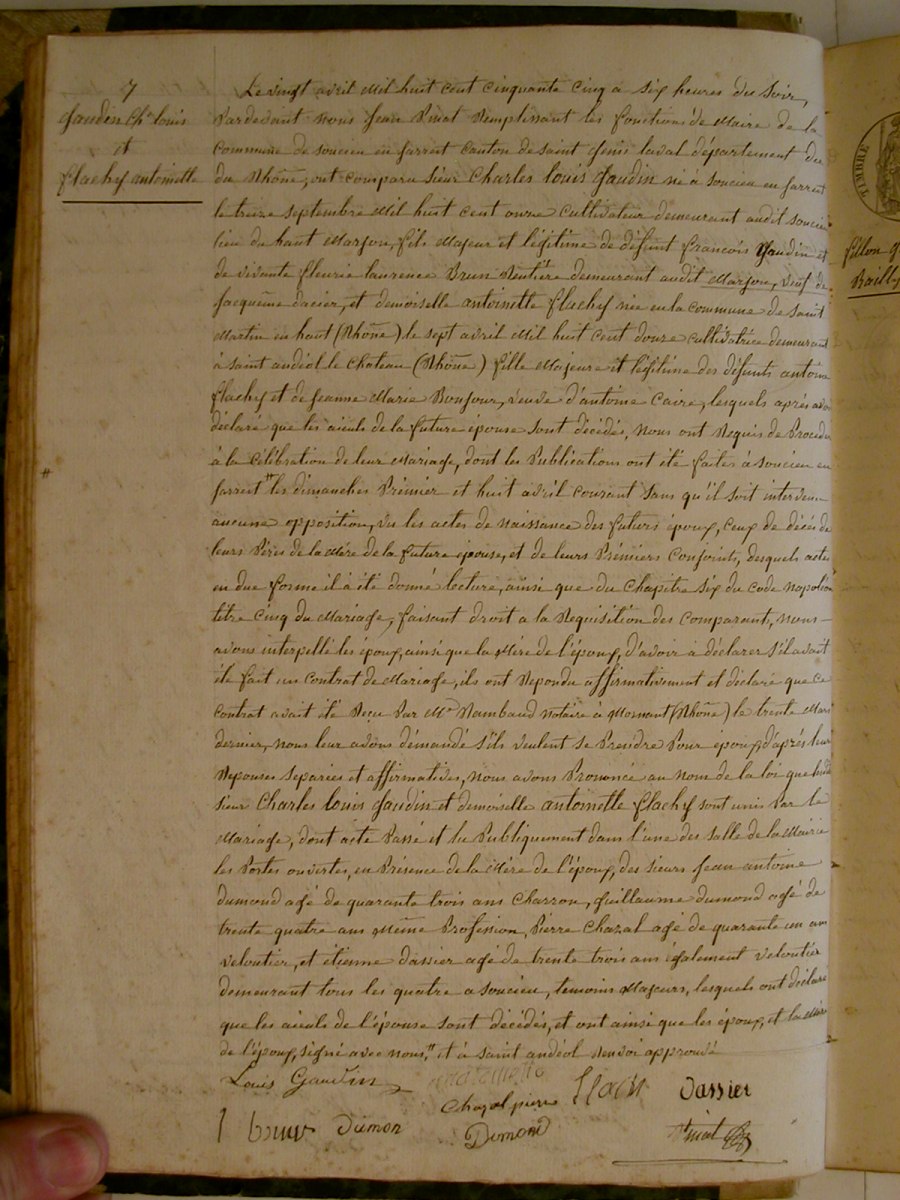 7
Gaudin Ch.s louis
et
flachy antoinette
Le vingt avril Mil huit cent cinquante cinq a six heures du Soir,
Pardevant nous Jean Pinat Remplissant les fonctions de Maire de la
Commune de soucieu en jarrest Canton de saint genis laval département du
du Rhône, ont comparu sieur Charles louis Gaudin né à soucieu en jarrest
le treize septembre Mil huit cent onze Cultivateur demeurant audit soucieu
lieu du haut Marjon, fils Majeur et légitime de défunt françois Gaudin et
de vivante fleurie laurence Brun Rentière demeurant audit Marjon, veuf de
Jacquème dacier, et demoiselle antoinette flachy née en la commune de saint
Martin en haut (Rhône) le sept avril Mil huit cent douze cultivatrice demeurant
à saint andéol le chateau (Rhône) fille Majeure et légitime des défunts antoine
flachy et de Jeanne Marie Bonjour, veuve d'antoine Caire, lesquels après avoir
déclaré que les aieuls de la future épouse sont décédés, Nous ont Requis de Procéder
à la célébration de leur Mariage, dont les Publications ont été faites à soucieu en
jarrest " les dimanches Premier et huit avril courant sans qu'il soit intervenu
aucune opposition, vu les actes de naissance des futurs époux, ceux de décès de
leurs Pères de la Mère de la future épouse, et de leurs Premiers Conjoints, desquels actes
en due forme il a été donné lecture, ainsi que du Chapitre six du code Napoléon
titre cinq du Mariage, faisant droit a la Requisition des Comparant, nous
avons interpellé les époux, ainsi que la Mère de l'époux, d'avoir à déclarer s'il avait
été fait un Contrat de Mariage, ils ont Repondu affirmativement et déclaré que ce
contrat avait été Reçu Par Me Rambaud Notaire à Mornant (Rhône) le trente Mars
dernier, nous leur avons démandé s'ils veulent se Prendre Pour époux, d'après leurs
Reponses separées et affirmatives, nous avons Prononcé au nom de la loi que
sieur Charles louis Gaudin et demoiselle antoinette flachy sont unis Par le
Mariage, dont acte Passé et lu Publiquement dans l'une des salle de la Mairie
les Portes ouvertes, en Présence de la Mère de l'époux, des sieurs Jean antoine
dumond agé de quarante trois ans Charron, guillaume dumond agé de
trente quatre ans Même Profession, Pierre Chazal agé de quarante un ans
veloutier, et étienne dassier agé de trente trois ans également veloutier
demeurant tous les quatre a soucieu, temoins Majeurs, lesquels ont déclaré
que les aieuls de l'épouse sont décédés, et ont ainsi que les époux, et la Mère
de l'époux, signé avec nous, " et à saint andéol Renvoi approuvé
Louis Gaudin antoinette flachy Dassier
Chazal pierre
l brun Dumon Dumond Pinat
TIMBRE
fillon
Bailly